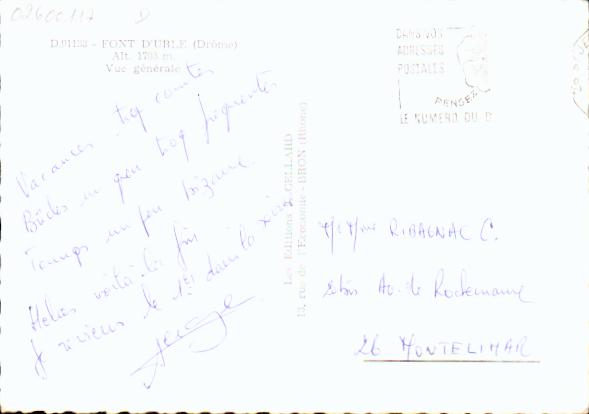 02600.117 D
D.91133 - FONT D'URLE (Drôme)
Alt. 1703 m.
Vue générale
Vacances trop courtes
Bûdes un peu trop fréquentés
Temps un peu bizarre.
Hélas voilà la fin
Je reviens le 1er dans la
DANS VOS
ADRESSES
POSTALES
PENSEZ
LE NUMERO DU D
Les Editions GELLARD
13, rue de l'Economie - BRON (Rhône)
M/Mme RIBAGNAC C.
Av. de Rochemaure
26 MONTELIMAR